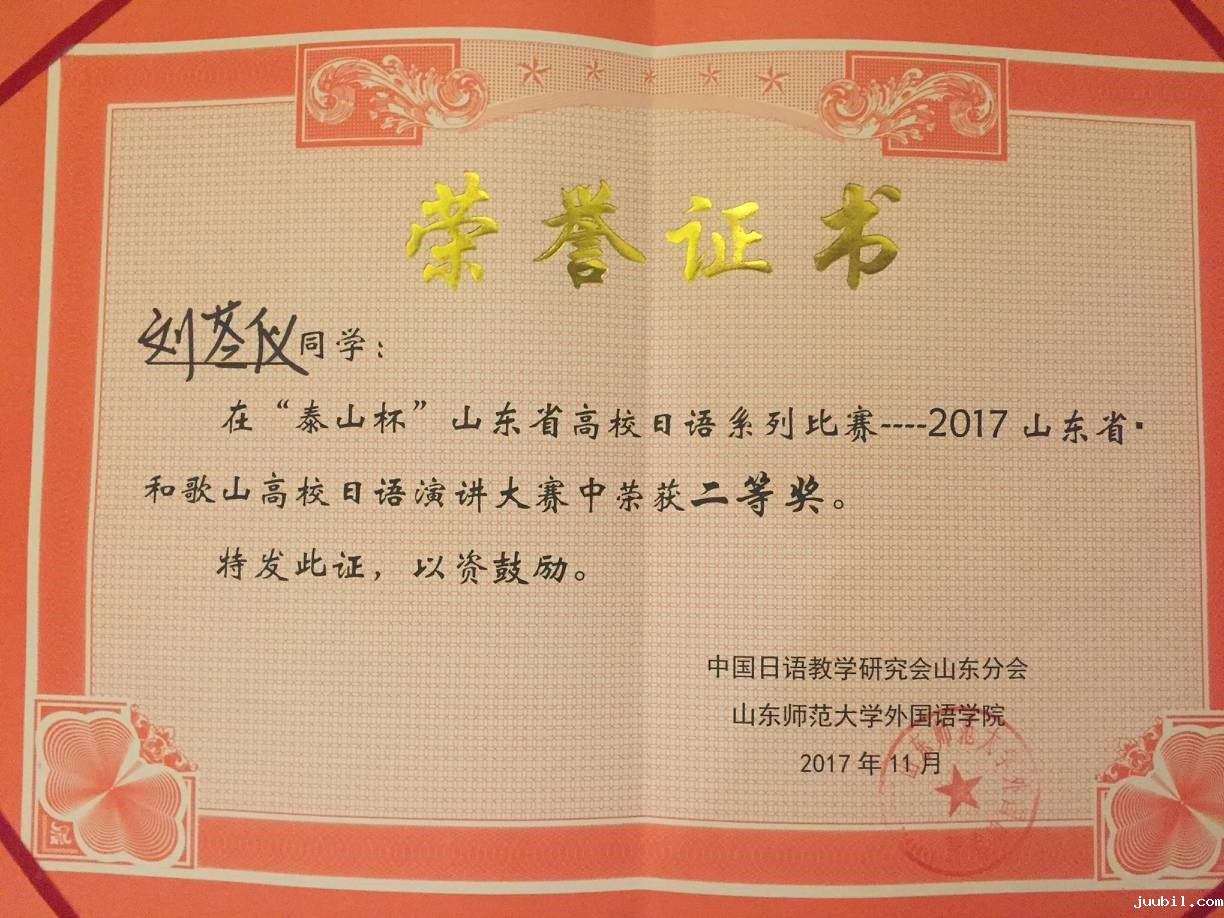 荣誉证书
刘芩仪同学：
在“泰山杯”山东省高校日语系列比赛----2017 山东省·
和歌山高校日语演讲大赛中荣获二等奖。
特发此证，以资鼓励。
中国日语教学研究会山东分会
山东师范大学外国语学院
2017 年 11 月
juubil.com